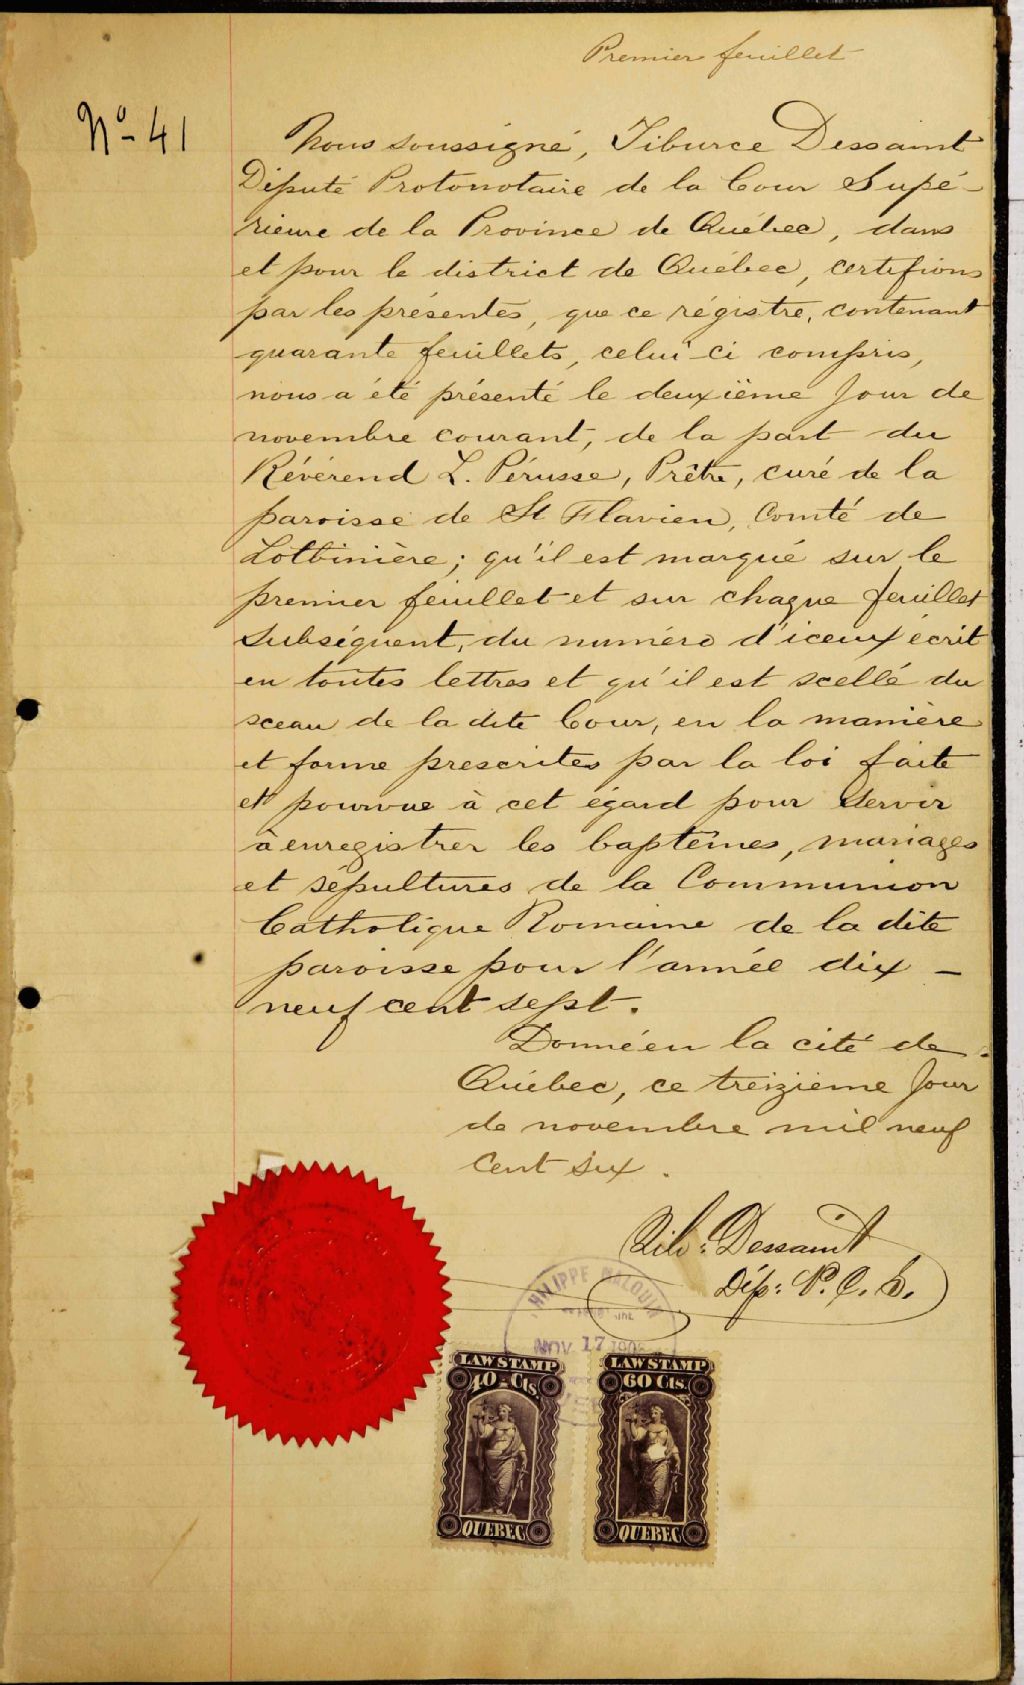 Premier feuillet
No- 41
Nous soussigné, Tiburce Dessaint
Député Protonotaire de la Cour Supé-
rieure de la Province de Québec, dans
et pour le district de Québec, certifions
par les présentes, que ce régistre, contenant
quarante feuillets, celui-ci compris,
nous a été présenté le deuxième jour de
novembre courant, de la part du
Révérend L. Pérusse, Prêtre, curé de la
paroisse de St Flavien, Comté de
Lotbinière; qu'il est marqué sur le
premier feuillet et sur chaque feuillet
subséquent, du numéro d'iceux écrit
en toutes lettres et qu'il est scellé du
sceau de la dite Cour, en la manière
et forme prescrites par la loi faite
et pourvue à cet égard pour servir
à enregistrer les baptêmes, mariages
et sépultures de la Communion
Catholique Romaine de la dite
paroisse pour l'année dix-
neuf cent sept.
Donnée en la cité de
Québec, ce treizième jour
de novembre mil neuf
cent six.
Tib: Dessaint
Dép: P. C. S.
PHILIPPE MALOUIN
NOV 17 190
LAW STAMP
40 Cts.
QUEBEC
LAW STAMP
60 Cts.
QUEBEC